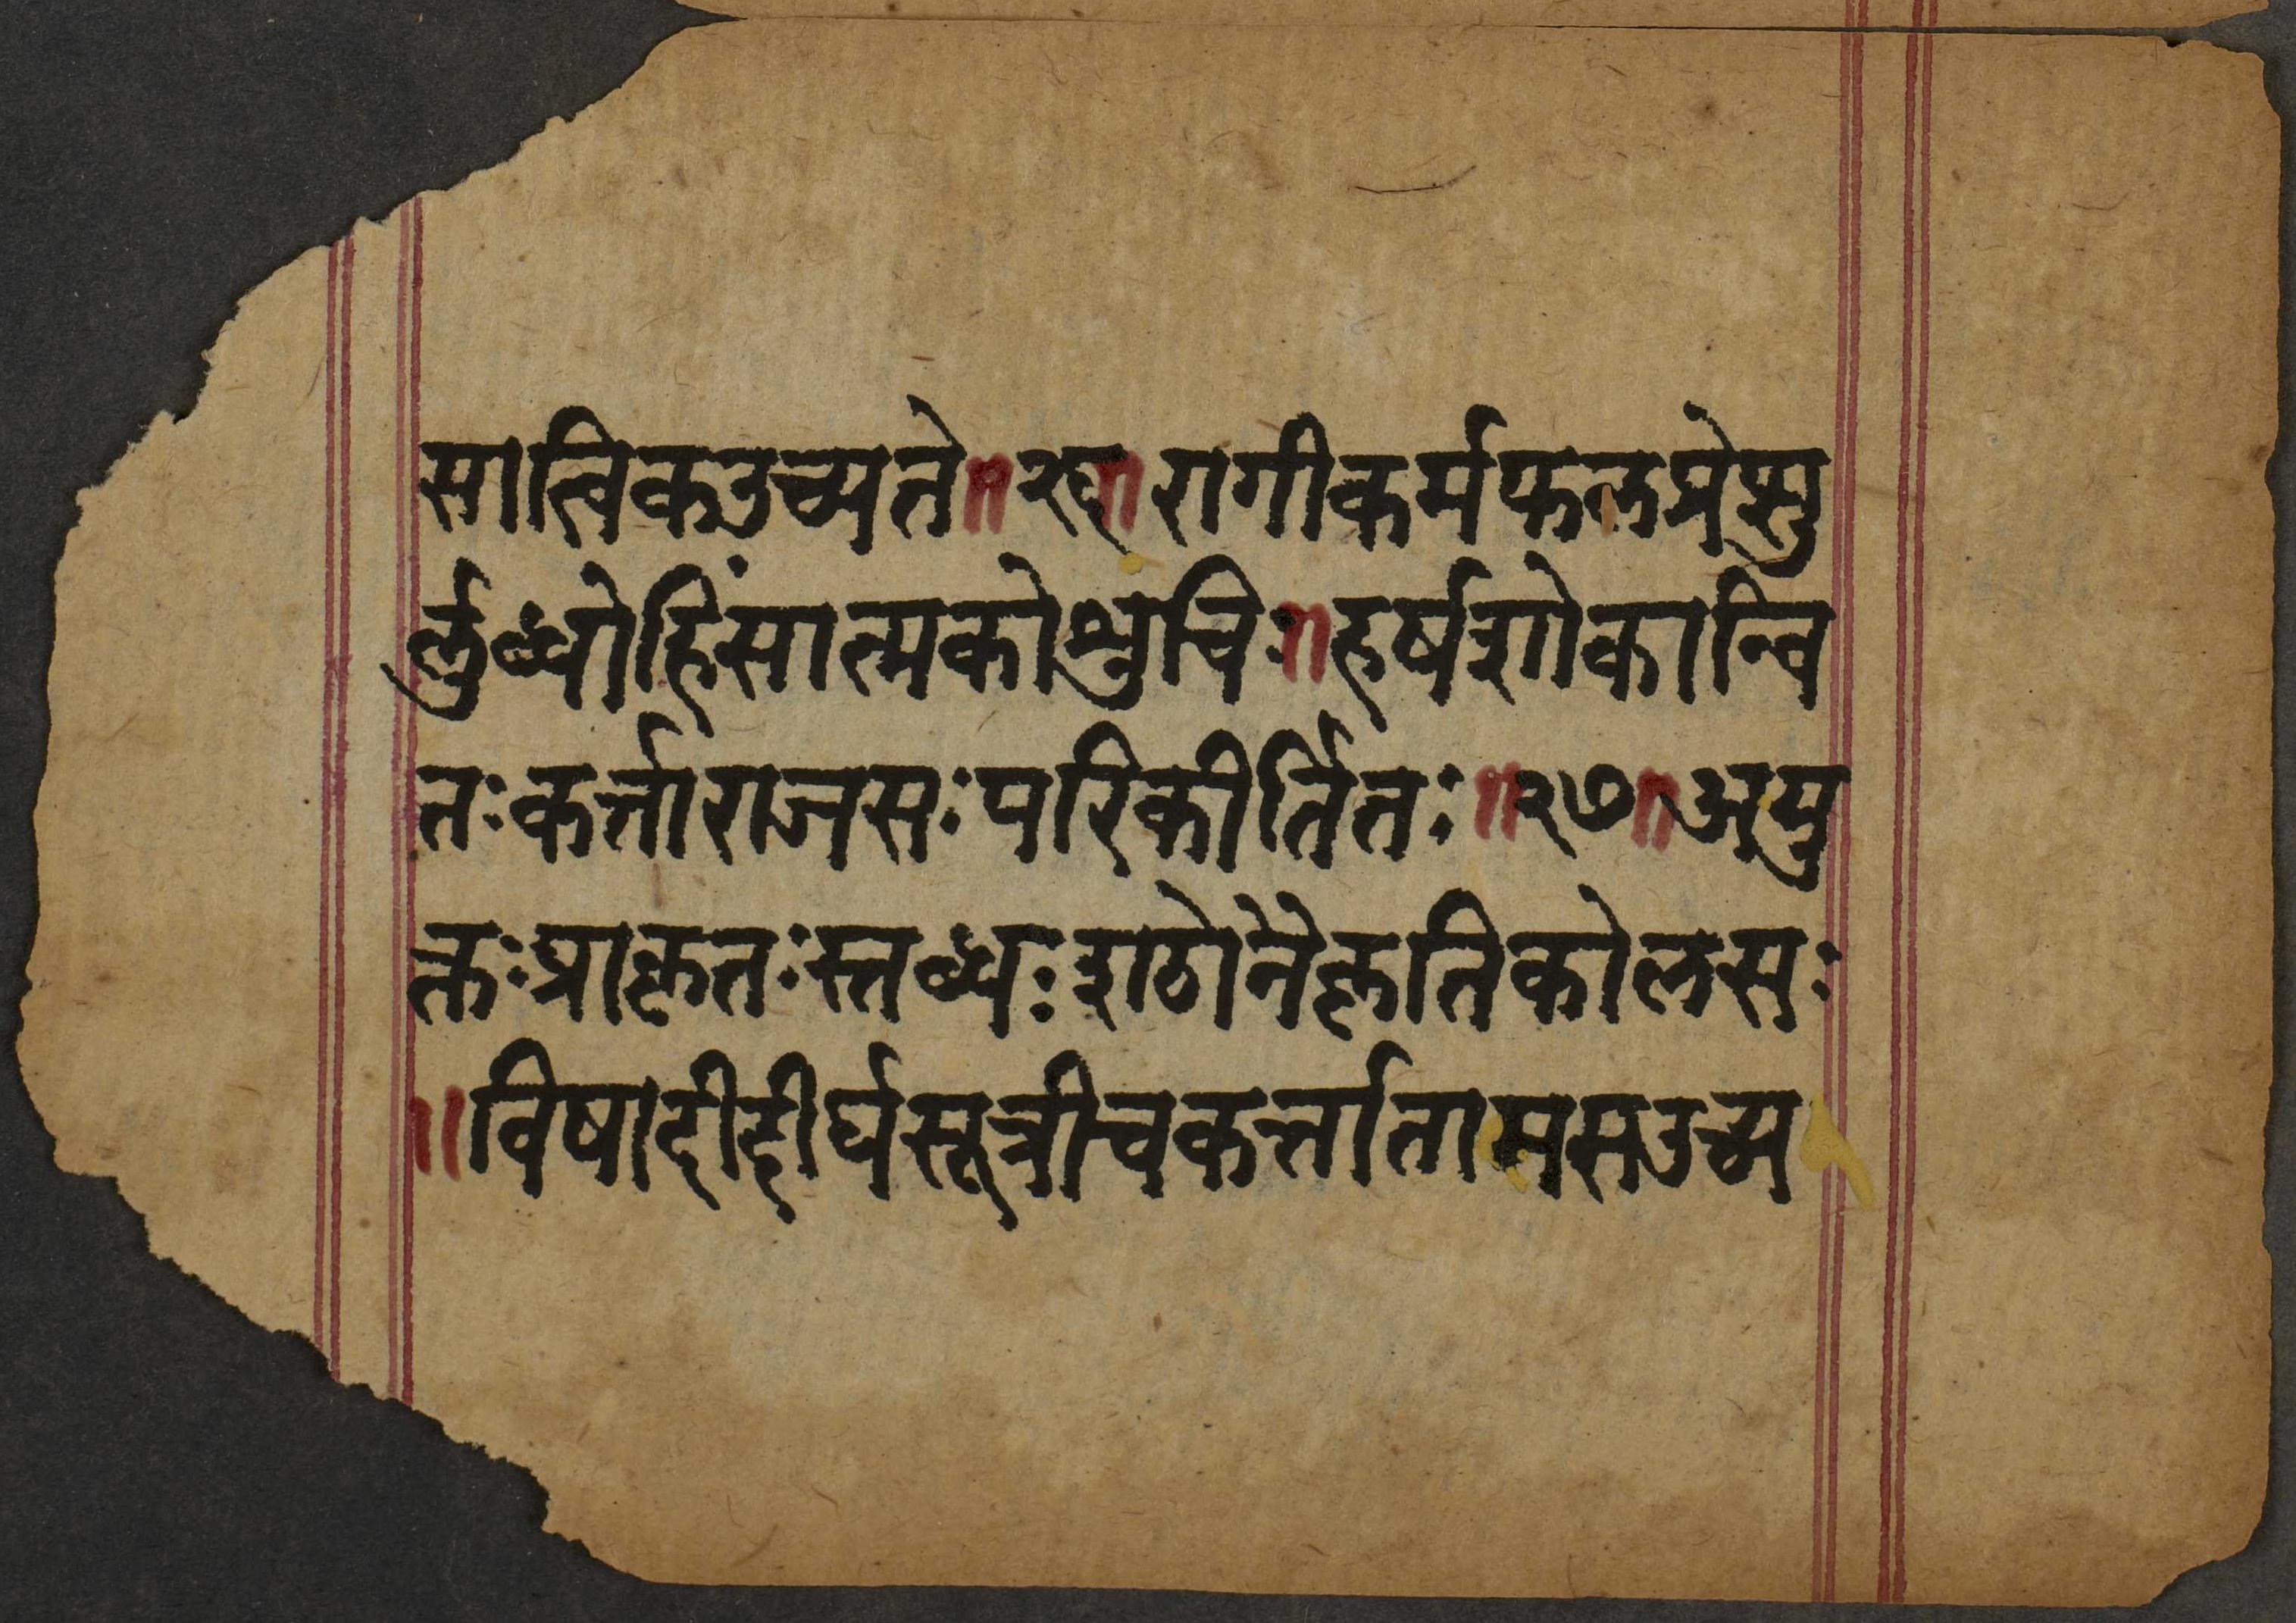 सात्विकउच्यते॥२६॥रागीकर्मफलप्रेप्सु
र्लुब्धोहिंसात्मकोशुचिः॥हर्षशोकान्वि
तःकर्त्ताराजसःपरिकीर्तितः॥२७॥अयु
क्तःप्राकृतःस्तब्धःशठोनैकृतिकोलसः
॥विषादीदीर्घसूत्रीचकर्त्तातामसउच्य